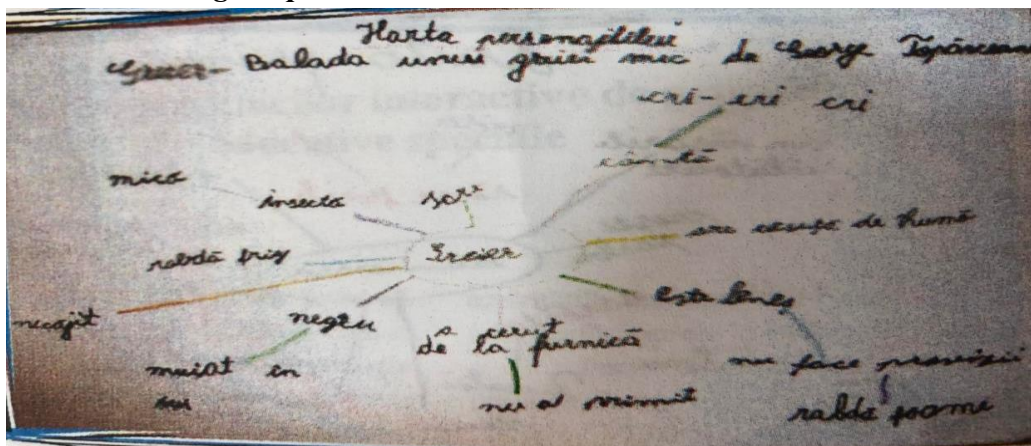 Harta personajului
Greier - Balada unui greier mic de George Topârceanu
cri - cri cri
cântă
mică
insectă
sare
are căsuță de humă
rabdă frig
Greier
este leneș
necăjit
negru
a cerut
de la furnică
muiat în
nu face provizii
nu a primit
rabdă foame